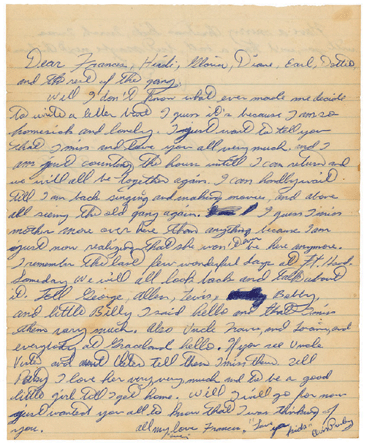 Dear Frances, Heidi, Gloria, Diane, Earl, Dottie
and the rest of the gang,
Well I don't know what ever made me decide
to write a letter but I guess it's because I'm so
homesick and lonely. I just want to tell you
that I miss and love you all very much and I
am just counting the hours untill I can return and
we will all be together again. I can hardly wait
till I am back singing and making movies, and above
all seeing the old gang again. I guess I miss
mother more over here than anything because I am
just now realizing that she won't be here anymore.
I remember the last few wonderful days at Ft. Hood.
Someday we will all look back and talk about
it. Tell George, Allen, Lewis, Bobby,
and little Billy I said hello and that I miss
them very much. Also Uncle and
everybody at Graceland hello. If you see Uncle
and aunt tell them I miss them. Tell
I love her very very much and to be a good
little girl till I get home. Well I will go for now
just wanted you all to know that I was thinking of
you. all my love Frances,